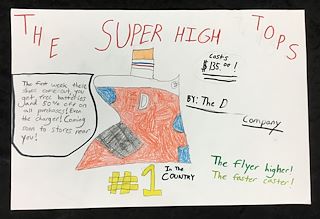 THE SUPER HIGH TOPS
costs
$135.00!
The first week these
shoes come out, you
get free batteries
and 50% off on
all purchases! Even
the charger! Coming
soon to stores near
you!
BY: The D
Company
#1 IN THE
COUNTRY
The flyer higher!
The faster caster!